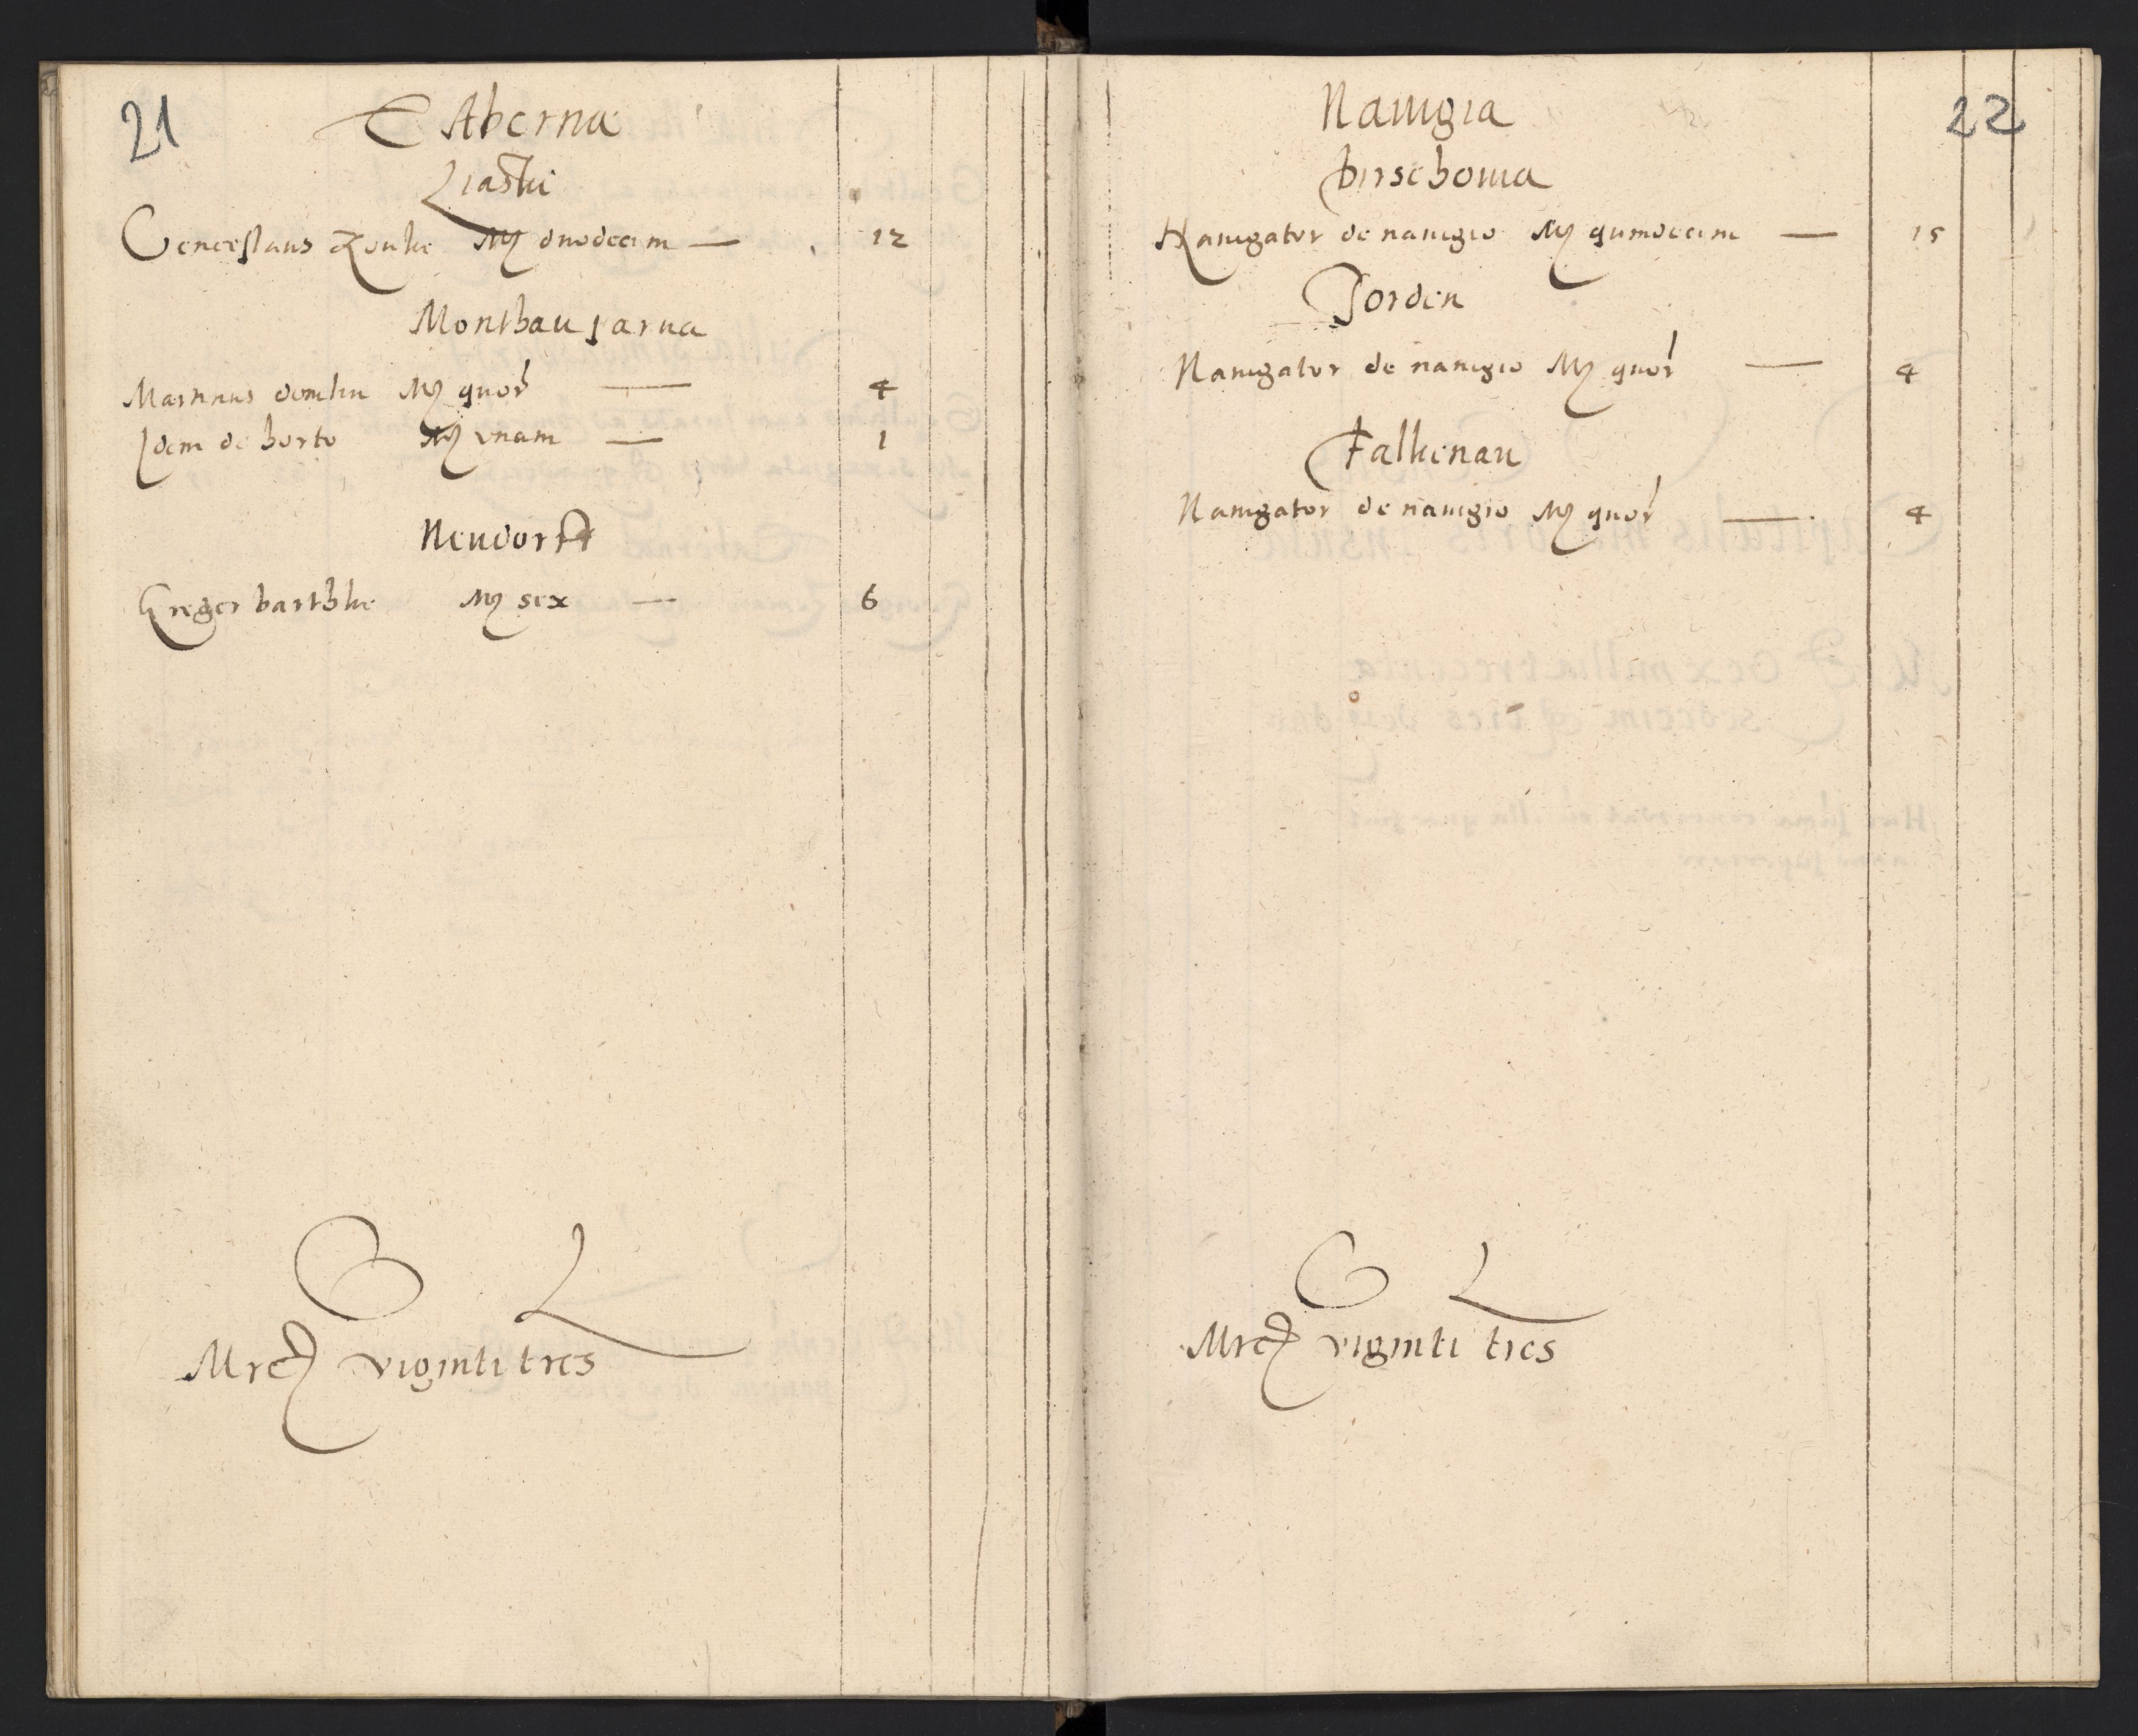 21
TAbernae
Liaski
Venceslaus Zouke Mrc duodecim — 12
Montbau parua
Martinus Mrc quor — 4
Idem de horto Mrc vnam — 1
Neudorff
Greger bartthke Mrc sex — 6
L
Mrc viginti tres
22
Nauigia
birschouia
Nauigator de nauigio Mrc quindecim — 15
Jorden
Nauigator de nauigio Mrc quor — 4
Falkenau
Nauigator de nauigio Mrc quor — 4
L
Mrc viginti tres